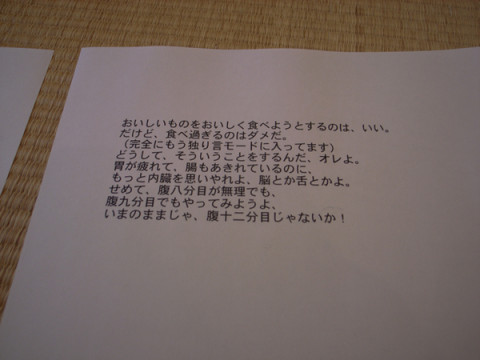 おいしいものをおいしく食べようとするのは、いい。
だけど、食べ過ぎるのはダメだ。
（完全にもう独り言モードに入ってます）
どうして、そういうことをするんだ、オレよ。
胃が疲れて、腸もあきれているのに、
もっと内臓を思いやれよ、脳とか舌とかよ。
せめて、腹八分目が無理でも、
腹九分目でもやってみようよ、
いまのままじゃ、腹十二分目じゃないか！